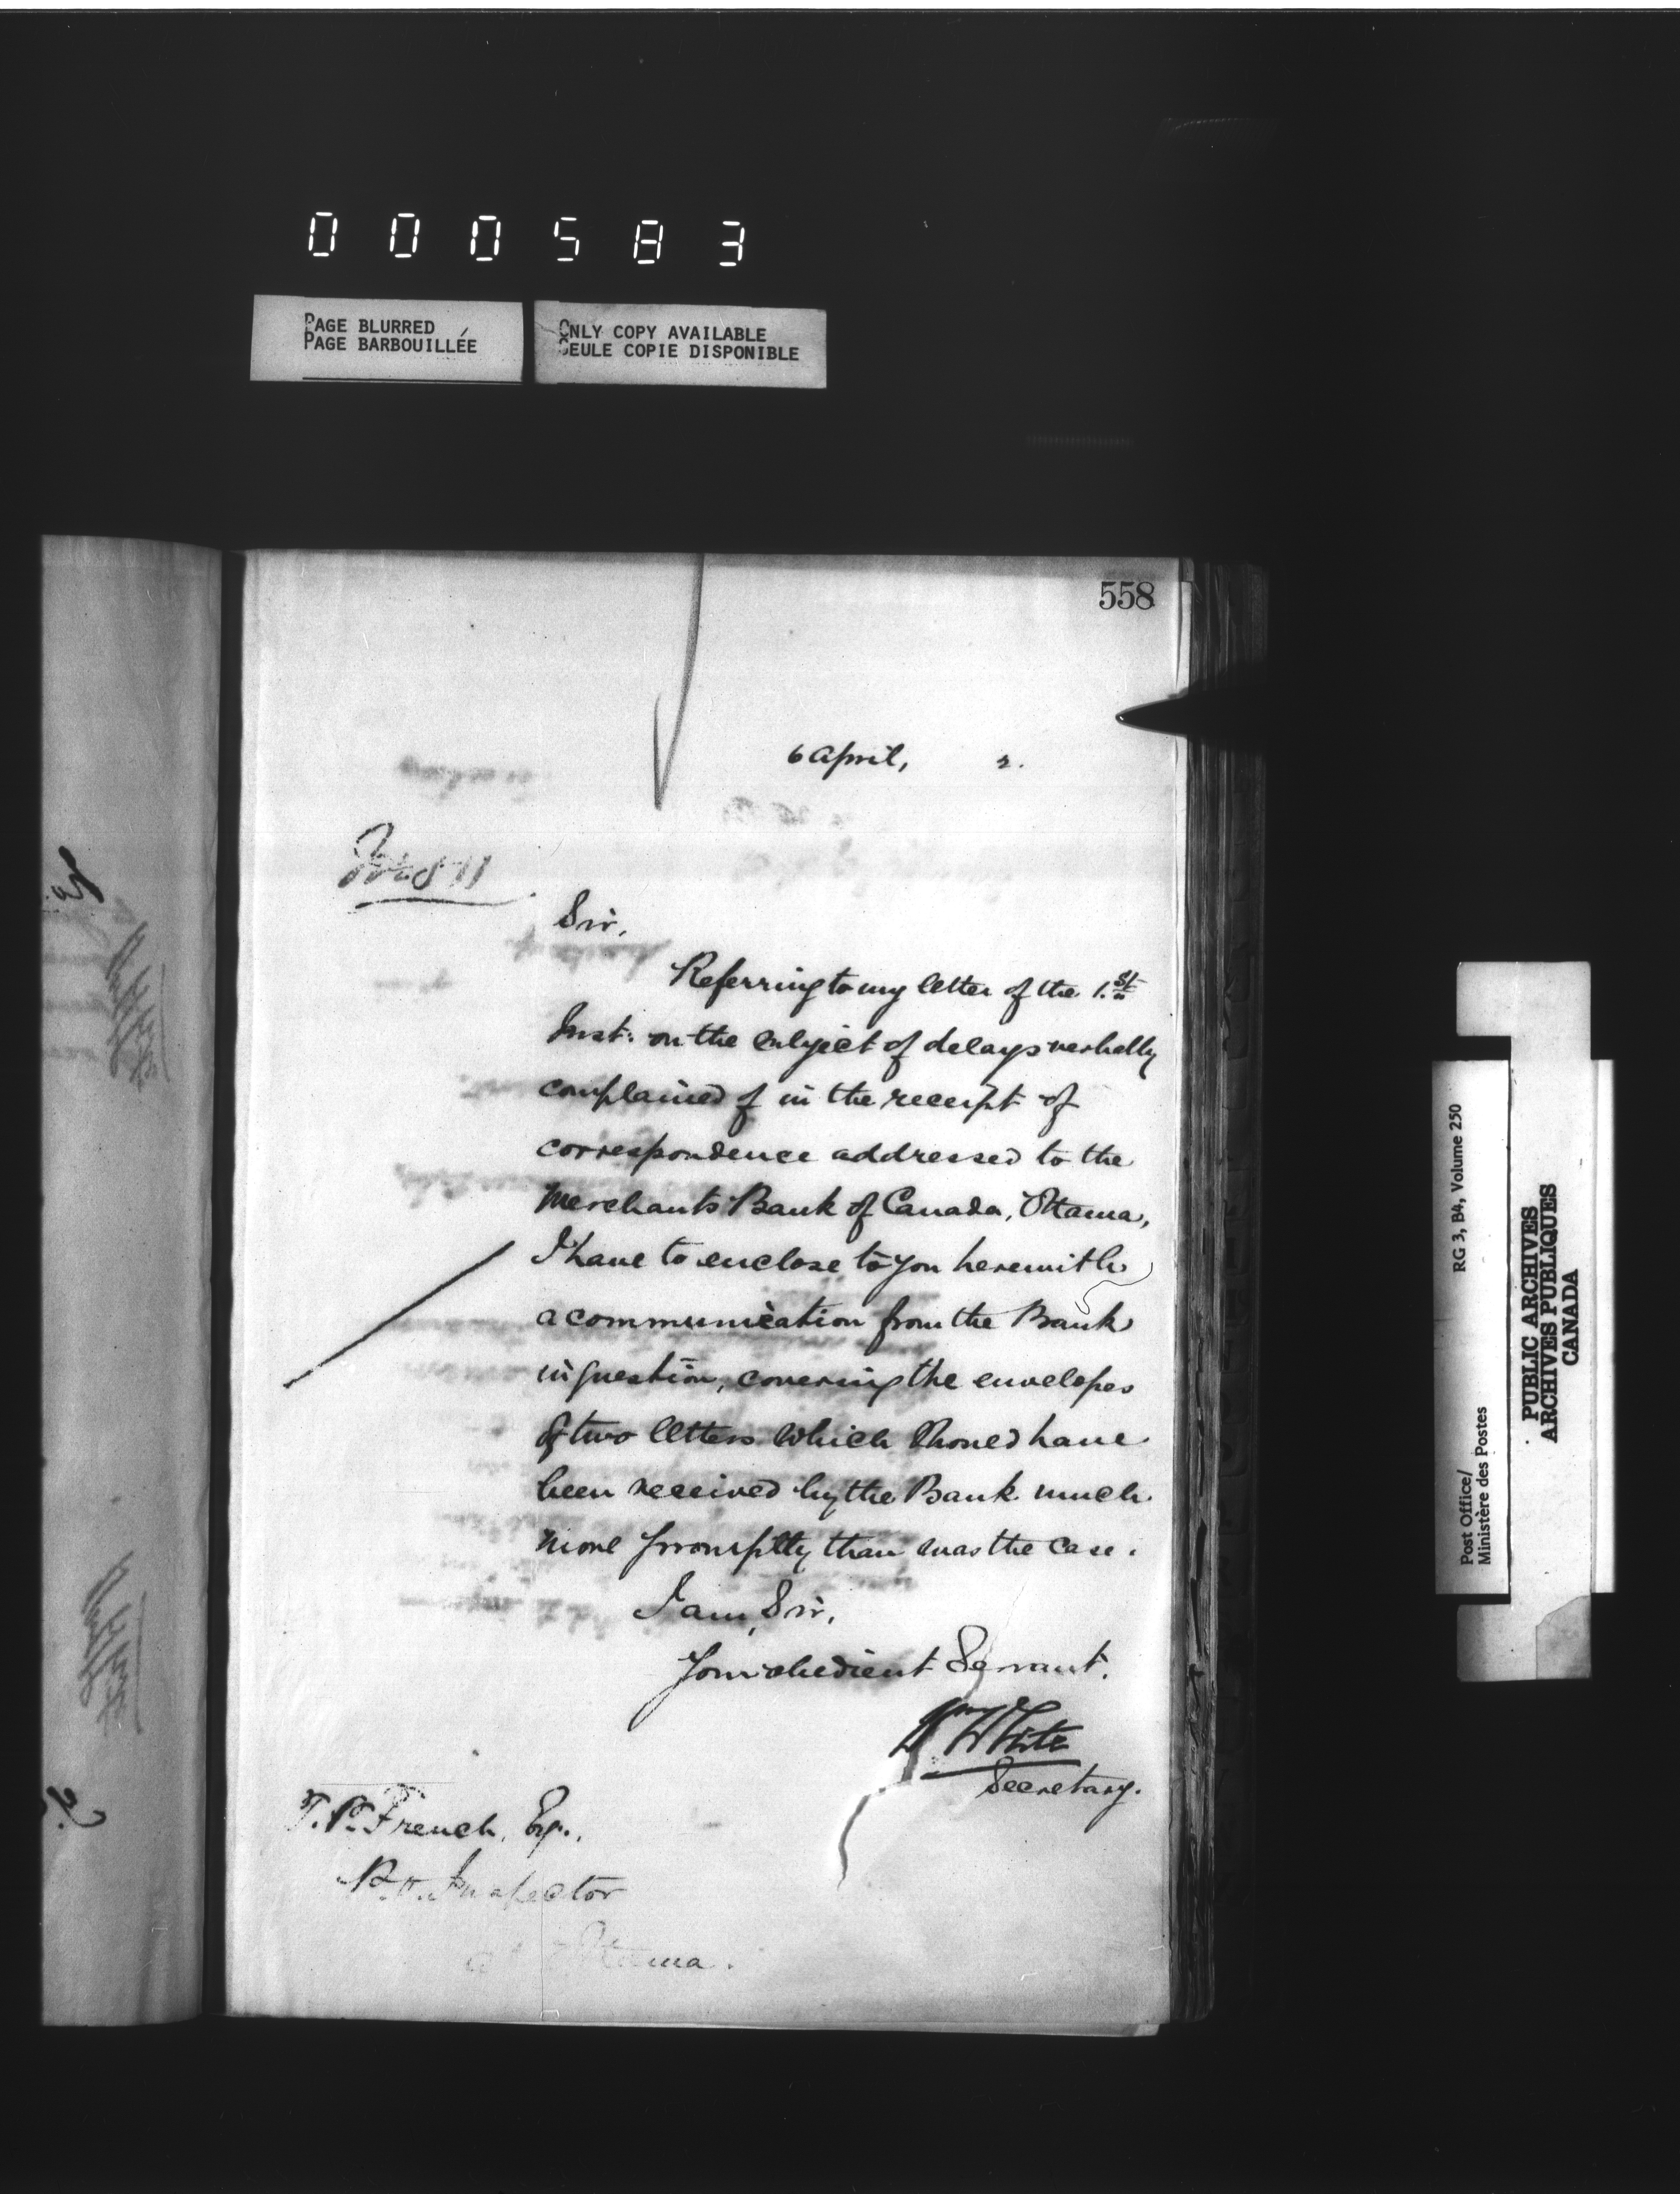 000583
PAGE BLURRED
PAGE BARBOUILLÉE
ONLY COPY AVAILABLE
SEULE COPIE DISPONIBLE
558
6 April, 2.
Sir,
Referring to my letter of the 1.st
Inst. on the subject of delays verbally
complained of in the receipt of
correspondence addressed to the
Merchants Bank of Canada, Ottawa,
I have to enclose to you herewith
a communication from the Bank
in question, covering the envelopes
of two letters which should have
been received by the Bank much
more promptly than was the case.
I am, Sir,
Your obedient Servant.
Wm White
Secretary.
T.P. French, Esq.,
P.O. Inspector
at Ottawa.
RG 3, B4, Volume 250
Post Office/
Ministère des Postes
PUBLIC ARCHIVES
ARCHIVES PUBLIQUES
CANADA